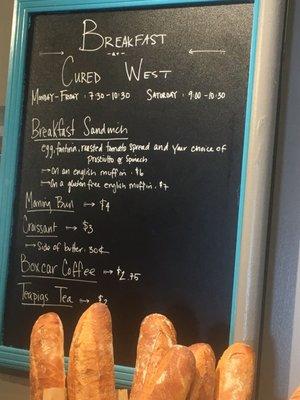 Breakfast
- at -
Cured West
Monday-Friday: 7:30-10:30 Saturday: 9:00-10:30
Breakfast Sandwich
egg, fontina, roasted tomato spread and your choice of
Prosciutto or Spinach
→ on an english muffin. $6
→ on a gluten free english muffin. $7
Morning Bun → $4
Croissant → $3
→ side of butter: 30¢
Boxcar Coffee → $2.75
Teapigs Tea → $2